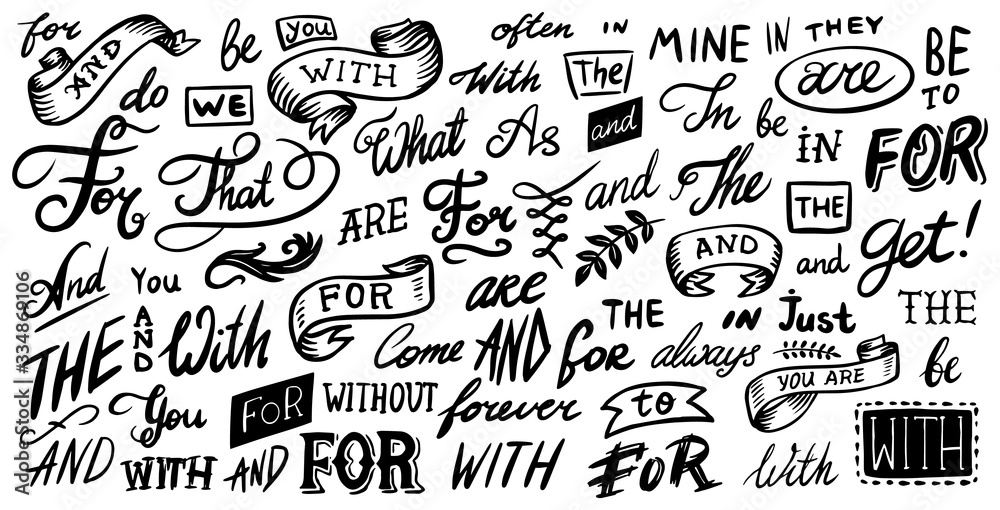 for AND be you WITH often IN MINE IN THEY are BE TO
do WE With The In be
For That What As and iN FOR
ARE For and The THE
And You FOR are AND and get!
THE AND With Come AND for THE IN Just THE
always YOU ARE be
You FoR WITHOUT forever to
AND WITH AND FOR WITH FoR with WITH
Adobe Stock
Adobe Stock
Adobe Stock
334869106